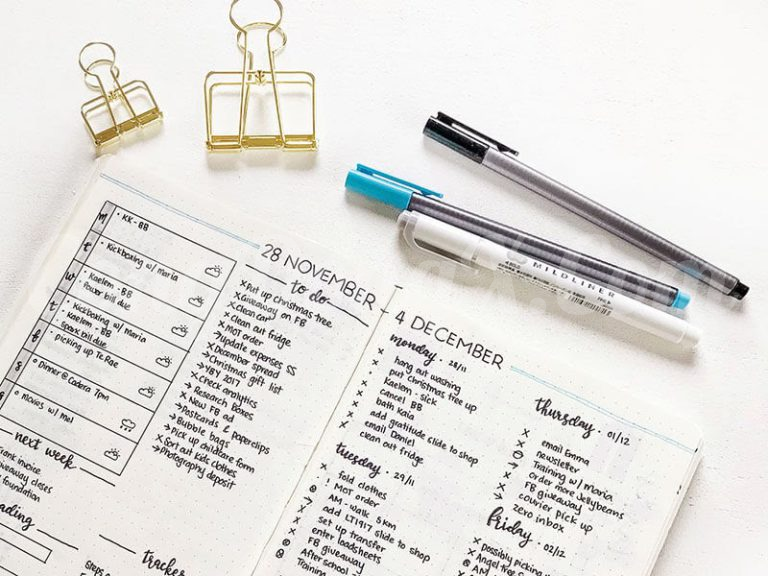 m
• KK - BB
t
• Kickboxing w/ Maria
w
• Kaelem - BB
• Power bill due
t
• Kickboxing w/ Maria
• Kaelem - BB
• Spark bill due
f
• picking up Te Rae
s
• Dinner @ Cadera 7pm
s
• Movies w/ Mel
next week
Frank invoice
giveaway closes
foundation
28 NOVEMBER
to do
x Put up christmas tree
x Giveaway on FB
x Clean car
x Clean out fridge
x MOT order
→ Update expenses SS
x December spread
→ Christmas gift list
→ YBY 2017
x Check analytics
→ Research boxes
x New FB ad
→ Postcards & paperclips
→ Bubble bags
x Pick up childcare form
x Sort out kids clothes
→ Photography deposit
tracker
4 DECEMBER
monday · 28/11
x hang out washing
x put christmas tree up
x Kaelem - sick
x cancel BB
x bath Kaia
x add gratitude slide to shop
x email Daniel
x clean out fridge
tuesday · 29/11
x fold clothes
! MOT order
AM - walk 5km
x add LT1917 slide to shop
x set up transfer
x enter loadsheets
FB giveaway
After school
Training
thursday · 01/12
x email Emma
newsletter
Training w/ Maria
→ Order more Jellybeans
x FB giveaway
x courier pick up
x zero inbox
friday · 02/12
x possibly picking
x Angel tree
AM
MILDLINER